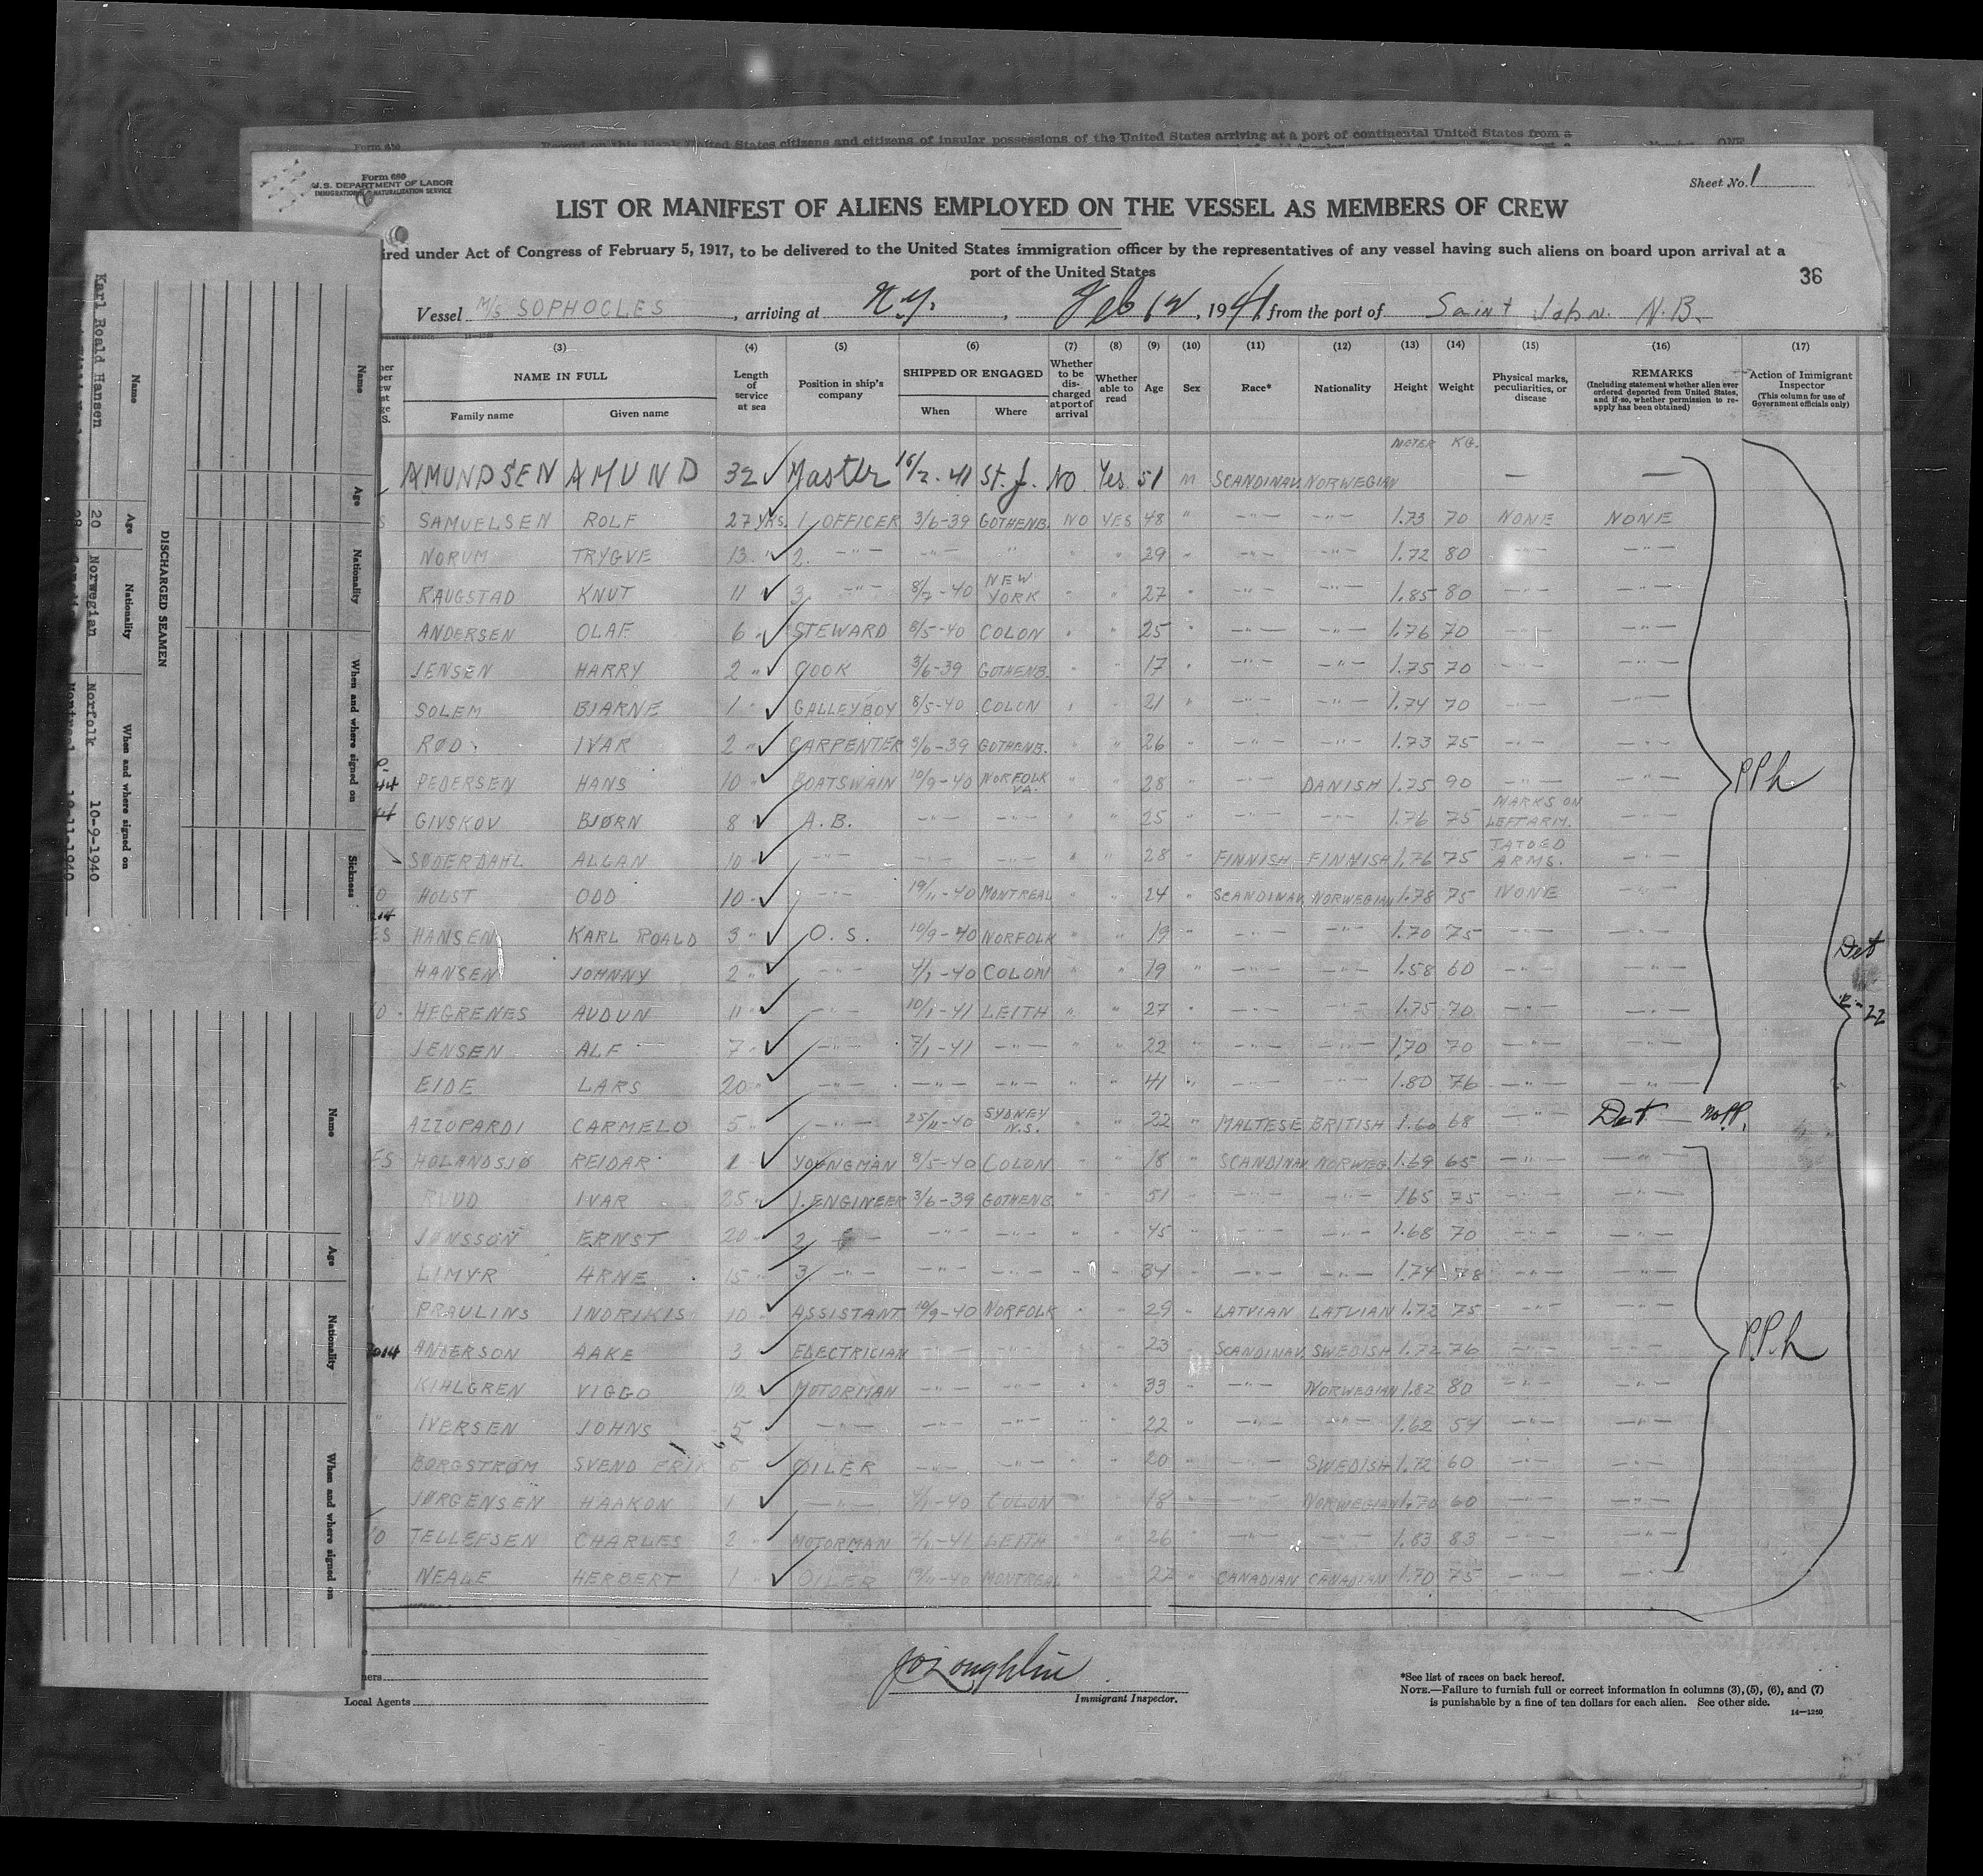 Record on this blank United States citizens and citizens of insular possessions of the United States arriving at a port of continental United States from a
Form 680
U.S. DEPARTMENT OF LABOR
IMMIGRATION & NATURALIZATION SERVICE
Sheet No. 1
LIST OR MANIFEST OF ALIENS EMPLOYED ON THE VESSEL AS MEMBERS OF CREW
ired under Act of Congress of February 5, 1917, to be delivered to the United States immigration officer by the representatives of any vessel having such aliens on board upon arrival at a
port of the United States
36
Vessel M/S SOPHOCLES, arriving at N.Y., Feb 12, 1941 from the port of Saint John. N.B.
(3) (4) (5) (6) (7) (8) (9) (10) (11) (12) (13) (14) (15) (16) (17)
NAME IN FULL
Family name Given name
Length of service at sea
Position in ship's company
SHIPPED OR ENGAGED
When Where
Whether to be discharged at port of arrival
Whether able to read
Age
Sex
Race*
Nationality
Height
Weight
Physical marks, peculiarities, or disease
REMARKS
(Including statement whether alien ever ordered deported from United States, and if so, whether permission to re-apply has been obtained)
Action of Immigrant Inspector
(This column for use of Government officials only)
METER KG.
AMUNDSEN AMUND 32 ✓ Master 16/2-41 St. J. No Yes 51 m SCANDINAV. NORWEGIAN — —
SAMUELSEN ROLF 27 YRS. 1. OFFICER 3/6-39 GOTHENB. NO YES 48 " -"- -"- 1.73 70 NONE NONE
NORUM TRYGVE 13 " ✓ 2. -"- -"- " " " 29 " -"- -"- 1.72 80 -"- -"-
RAUGSTAD KNUT 11 ✓ 3. -"- 8/7-40 NEW YORK " " 27 " -"- -"- 1.85 80 -"- -"-
ANDERSEN OLAF 6 " ✓ STEWARD 8/5-40 COLON " " 25 " -"- -"- 1.76 70 -"- -"-
JENSEN HARRY 2 " ✓ COOK 3/6-39 GOTHENB. " " 17 " -"- -"- 1.75 70 -"- -"-
SOLEM BJARNE 1 ✓ GALLEYBOY 8/5-40 COLON " " 21 " -"- -"- 1.74 70 -"- -"-
RØD IVAR 2 " ✓ CARPENTER 3/6-39 GOTHENB. " " 26 " -"- -"- 1.73 75 -"- -"-
PEDERSEN HANS 10 " ✓ BOATSWAIN 10/9-40 NORFOLK VA. " " 28 " -"- DANISH 1.75 90 -"- -"-
GIVSKOV BJØRN 8 " ✓ A.B. -"- -"- " " 25 " -"- -"- 1.76 75 MARKS ON LEFT ARM.
SØDERDAHL ALLAN 10 " ✓ -"- -"- -"- " " 28 " FINNISH FINNISH 1.76 75 TATOED ARMS. -"-
HOLST ODD 10 " ✓ -"- 19/11-40 MONTREAL " " 24 " SCANDINAV. NORWEGIAN 1.78 75 NONE -"-
HANSEN KARL ROALD 3 " ✓ O. S. 10/9-40 NORFOLK " " 19 " -"- -"- 1.70 75 -"- -"-
HANSEN JOHNNY 2 " ✓ -"- 4/1-40 COLON " " 19 " -"- -"- 1.58 60 -"- -"-
HEGRENES AUDUN 11 " ✓ -"- 10/1-41 LEITH " " 27 " -"- -"- 1.75 70 -"- -"-
JENSEN ALF 7 " ✓ -"- 7/1-41 -"- " " 22 " -"- -"- 1.70 70 -"- -"-
EIDE LARS 20 " ✓ -"- -"- -"- " " 41 " -"- -"- 1.80 76 -"- -"-
AZZOPARDI CARMELO 5 " -"- 25/11-40 SYDNEY N.S. " " 22 " MALTESE BRITISH 1.60 68 -"- Det no pp.
HOLANDSJØ REIDAR 1 " ✓ YOUNGMAN 8/5-40 COLON " " 18 " SCANDINAV. NORWEG. 1.69 65 -"- -"-
RUUD IVAR 25 " ✓ 1. ENGINEER 3/6-39 GOTHENB. " " 51 " -"- -"- 165 75 -"- -"-
JONSSON ERNST 20 " 2 -"- -"- -"- " " 45 " -"- -"- 1.68 70 -"- -"-
LIMYR ARNE 15 " 3 -"- -"- -"- " " 34 " -"- -"- 1.74 78 -"- -"-
PRAULINS INDRIKIS 10 " ✓ ASSISTANT 10/9-40 NORFOLK " " 29 " LATVIAN LATVIAN 1.72 75 -"- -"-
ANDERSON AAKE 3 ✓ ELECTRICIAN -"- -"- " " 23 SCANDINAV. SWEDISH 1.72 76 -"- -"-
KIHLGREN VIGGO 12 ✓ MOTORMAN -"- -"- " " 33 " -"- NORWEGIAN 1.82 80 -"- -"-
IVERSEN JOHNS 5 ✓ -"- -"- -"- " " 22 " -"- -"- 1.62 54 -"- -"-
BORGSTRØM SVEND ERIK 5 ✓ OILER -"- -"- " " 20 " -"- SWEDISH 1.72 60 -"- -"-
JØRGENSEN HAAKON 1 ✓ -"- 4/1-40 COLON " " 18 " -"- NORWEGIAN 1.70 60 -"- -"-
TELLEFSEN CHARLES 2 " MOTORMAN LEITH " " 26 " -"- -"- 1.83 83 -"- -"-
NEALE HERBERT 1 ✓ OILER 19/11-40 MONTREAL " " 27 " CANADIAN CANADIAN 1.70 75 -"- -"-
P.P.h
Det
22
P.P.h
Local Agents
Immigrant Inspector.
*See list of races on back hereof.
NOTE.—Failure to furnish full or correct information in columns (3), (5), (6), and (7)
is punishable by a fine of ten dollars for each alien. See other side.
14—1240
DISCHARGED SEAMEN
Name Age Nationality When and where signed on
Karl Roald Hansen 20 Norwegian Norfolk 10-9-1940
Montreal 19-11-1940
Name Age Nationality When and where signed on Sickness
Name Age Nationality When and where signed on